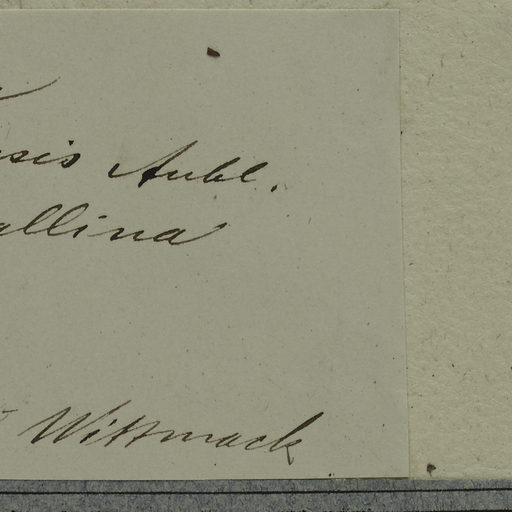 nsis Aubl.
allina
Wittmack